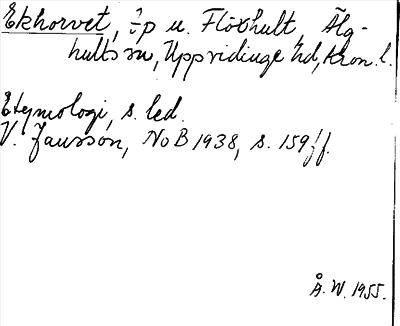 Ekhorvet, ÷p u. Flöxhult, Älg-
hults sn, Uppvidinge hd, Kron. l.
Etymologi, s. led.
V. Jansson, NoB 1938, s. 159 ff.
Å. W. 1955.